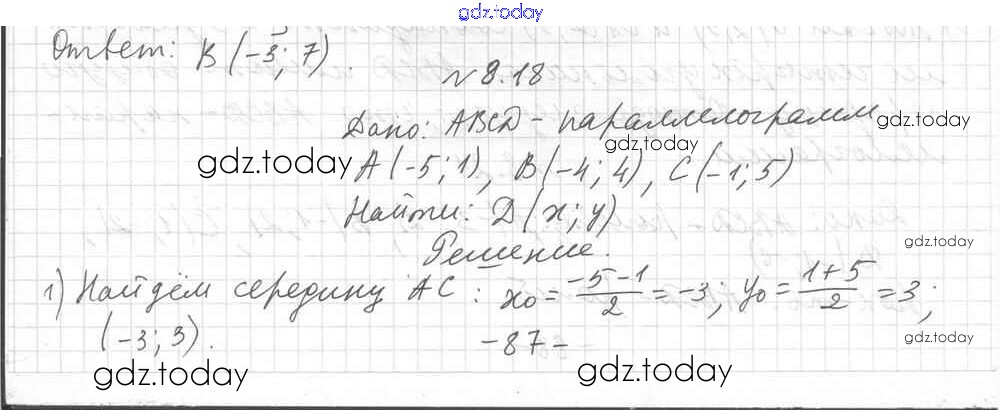 gdz.today
Ответ: B (-3; 7).
№ 8.18
Дано: ABCD - параллелограмм
gdz.today
gdz.today
gdz.today
A(-5; 1), B(-4; 4), C(-1; 5)
Найти: D(x; y)
Решение.
gdz.today
1) Найдём середину AC: x₀ = \frac{-5-1}{2} = -3; y₀ = \frac{1+5}{2} = 3;
(-3; 3).
-87-
gdz.today
gdz.today
gdz.today